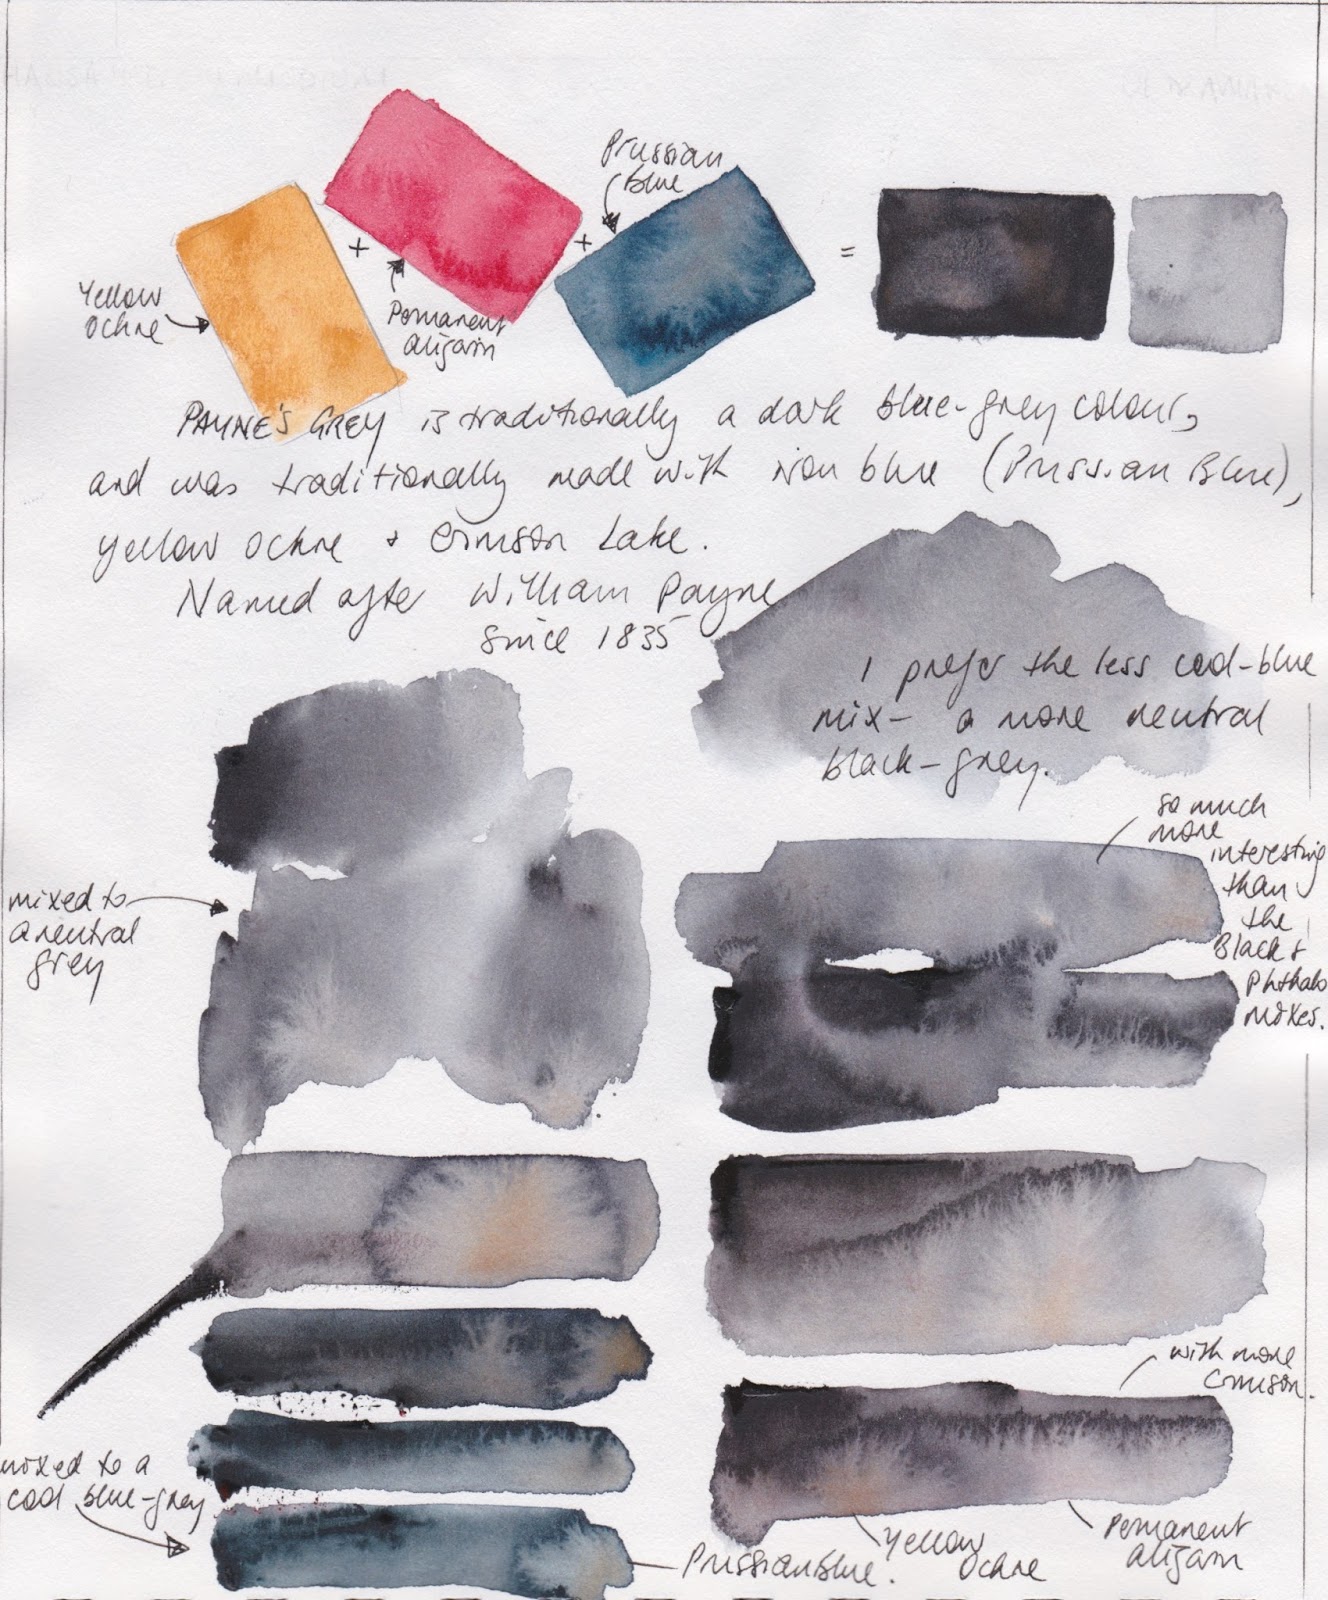 Prussian
Blue
Yellow
Ochre
+
+
=
Permanent
alizarin
PAYNE'S GREY is traditionally a dark blue-grey colour,
and was traditionally made with iron blue (Prussian Blue),
yellow ochre + Crimson Lake.
Named after William Payne
since 1835
I prefer the less cool-blue
mix- a more neutral
black-grey.
so much
more
interesting
than
the
Black &
Phthalo
mixes.
mixed to
a neutral
grey
with more
Crimson.
mixed to a
cool blue-grey
Prussian Blue.
Yellow
Ochre
Permanent
alizarin